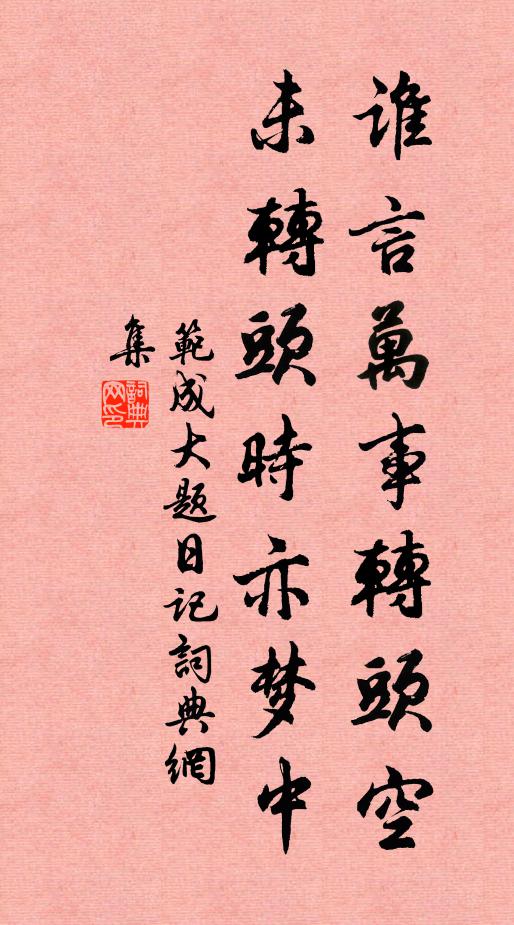 谁言萬事轉頭空
未轉頭時亦梦中
範成大题日记詞典網
集
詞典网印